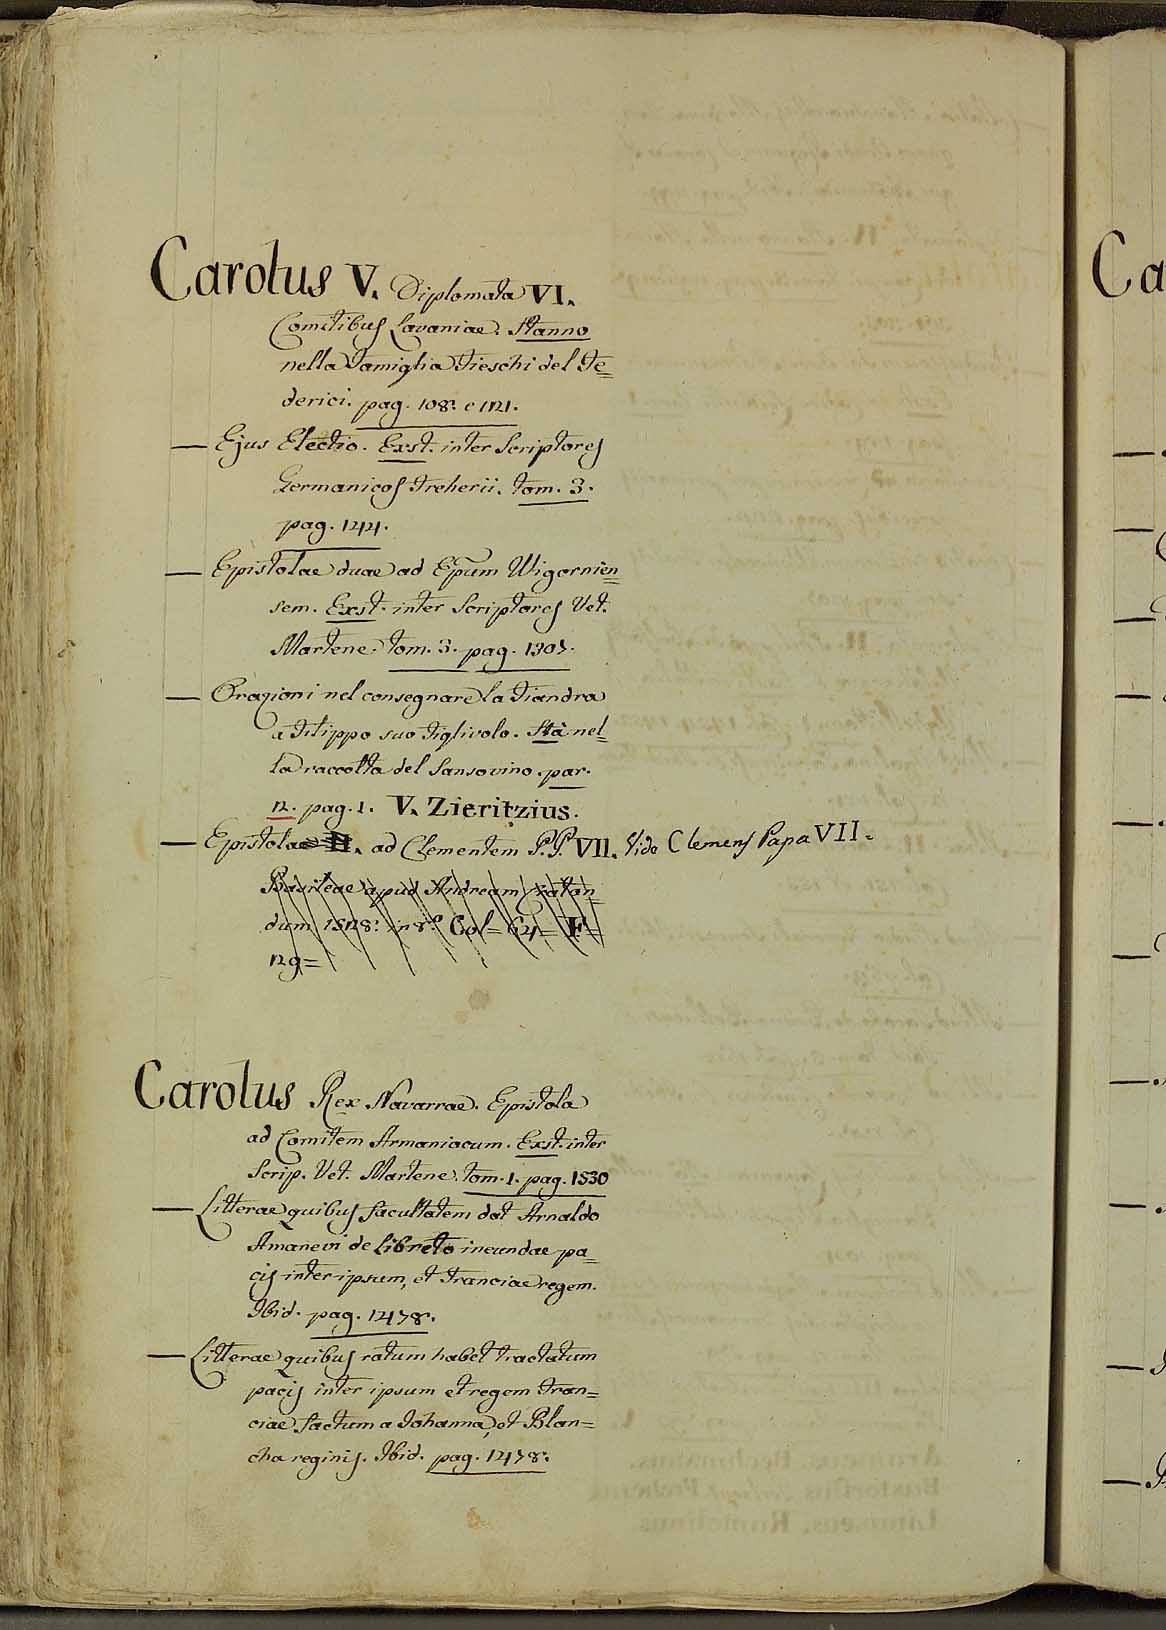 Carolus V. Diplomata VI.
Comitibus Lavaniae. Stanno
nella Famiglia Fieschi del Fe=
derici. pag. 108. e 121.
— Ejus Electio. Exst. inter Scriptores
Germanicos Freherii. tom. 3.
pag. 244.
— Epistolae duae ad Epum Wigornien=
sem. Exst. inter Scriptores Vet.
Martene. tom. 3. pag. 1307.
— Orazioni nel consegnare la Fiandra
a Filippo suo Figlivolo. Stà nel=
la raccolta del Sansovino. par.
2. pag. 1. V. Zieritzius.
— Epistolae II. ad Clementem P.P. VII. Vide Clemens Papa VII.
Basileae apud Andream Cratan=
dum 1528. in 8º Col= 64= F.=
29=
Carolus Rex Navarrae. Epistola
ad Comitem Armaniacum. Exst. inter
Scrip. Vet. Martene. tom. 1. pag. 1530
— Litterae quibus facultatem dat Arnaldo
Amanevi de libreto ineundae pa=
cis inter ipsum, et Franciae regem.
Ibid. pag. 1478.
— Litterae quibus ratum habet tractatum
pacis inter ipsum et regem Fran=
ciae factum a Johanna, et Blan=
cha reginis. Ibid. pag. 1478.
Ca